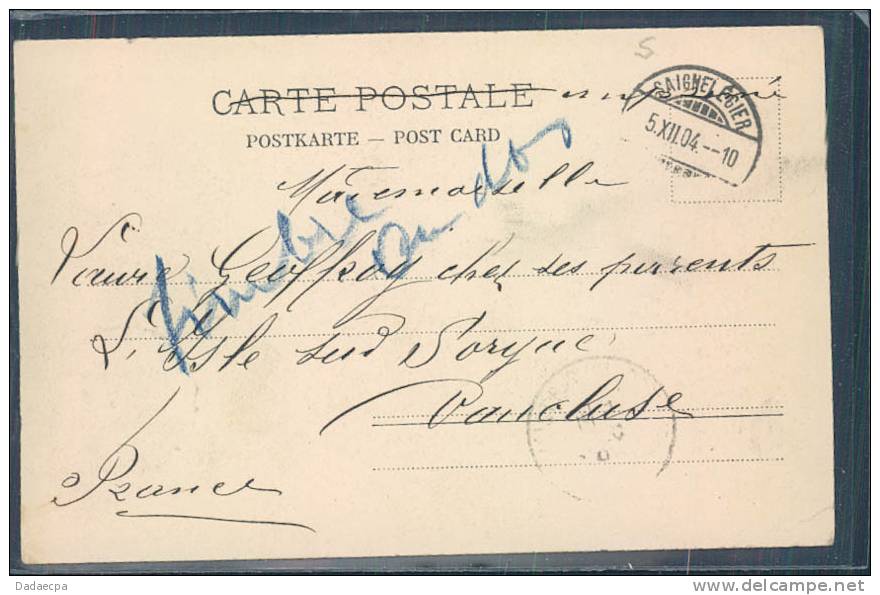 CARTE POSTALE imprimé
POSTKARTE — POST CARD
SAIGNELÉGIER
5.XII.04.--10
Mademoiselle
timbre
au dos
Geoffroy chez ses parents
L'Isle sud Sorgue
Vaucluse
France
Dadaecpa
delcampe.net